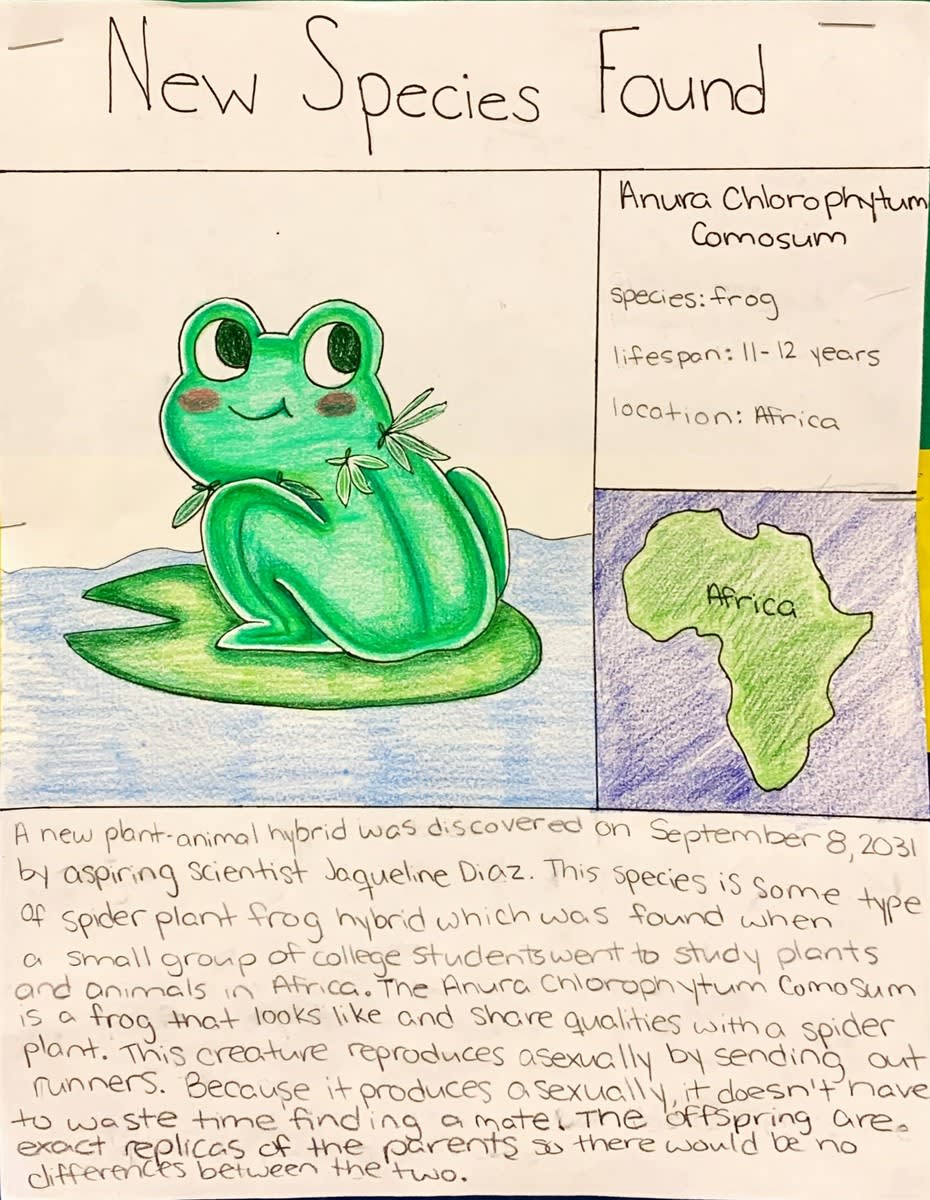 New Species Found
Anura Chlorophytum
Comosum
species: frog
lifespan: 11-12 years
location: Africa
Africa
A new plant-animal hybrid was discovered on September 8, 2031
by aspiring scientist Jaqueline Diaz. This species is some type
of spider plant frog hybrid which was found when
a small group of college students went to study plants
and animals in Africa. The Anura Chlorophytum Comosum
is a frog that looks like and share qualities with a spider
plant. This creature reproduces asexually by sending out
runners. Because it produces asexually, it doesn't have
to waste time finding a mate. The offspring are.
exact replicas of the parents so there would be no
differences between the two.